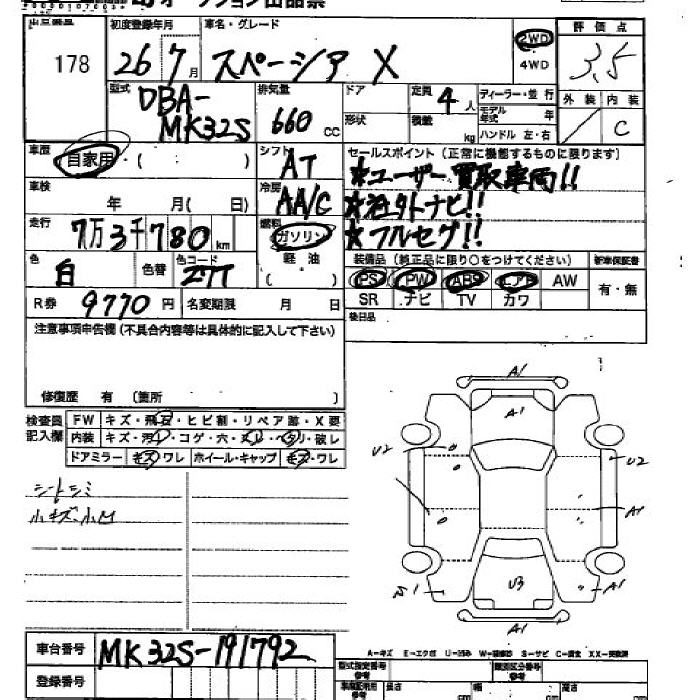 オークション出品票
出品番号 初度登録年月 車名・グレード 評価点
178 26 7月 スペーシア X 2WD 4WD 3.5
型式 排気量 ドア 定員 ディーラー・並行 外装 内装
DBA-MK32S 660 CC 形状 4人 積載 kg モデル年式 年 ハンドル 左・右 C
車歴 シフト セールスポイント (正常に機能するものに限ります)
自家用・( : ) AT ★ユーザー買取車両!!
車検 年 月( 日) 冷房 AA/C ★社外ナビ!!
走行 7万3千780km 燃料 ガソリン ★フルセグ!!
色 白 色替 色コード Z7T 軽油 ( )
装備品 (純正品に限り○をつけてください) 新車保証書
PS PW ABS エアB AW 有・無
SR ナビ TV カワ
R券 9770円 名変期限 月 日 後日品
注意事項申告欄 (不具合内容等は具体的に記入して下さい)
修復歴 有 (箇所 )
検査員記入欄 FW キズ・飛石・ヒビ割・リペア跡・X要
内装 キズ・汚レ・コゲ・穴・スレ・ヘタリ・破レ
ドアミラー キズ・ワレ ホイール・キャップ キズ・ワレ
シートシミ
小キズ、小凹
A1
A1
U2 U2
A1
S1 U3 A1
A1
A-キズ E-エクボ U-凹み W-補修跡 S-サビ C-腐食 XX-交換済
車台番号 MK32S-191792
登録番号
型式指定番号 類別区分番号
長さ cm 幅 cm 高さ cm